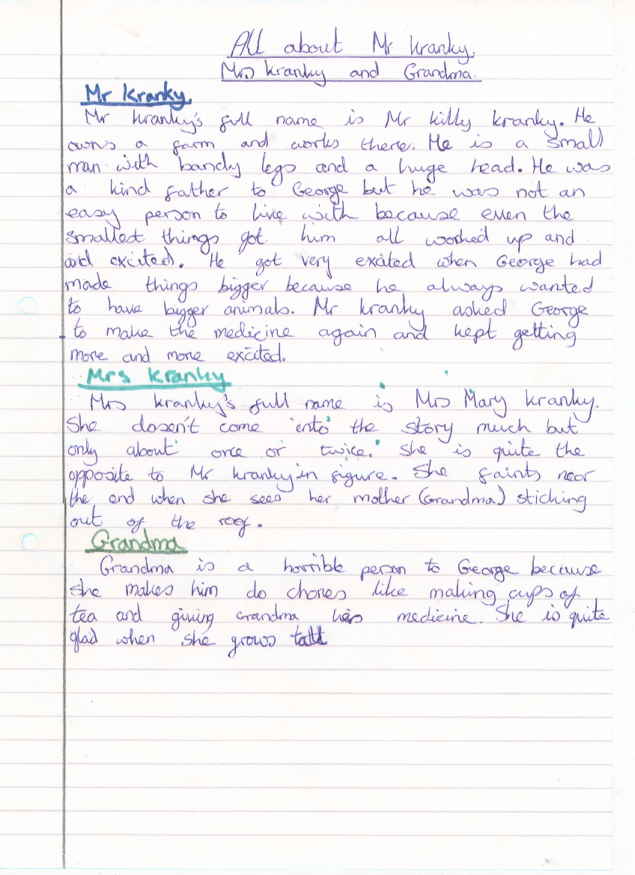 All about Mr Kranky,
Mrs Kranky and Grandma.
Mr Kranky
Mr Kranky's full name is Mr Killy Kranky. He
owns a farm and works there. He is a small
man with bandy legs and a huge head. He was
a kind father to George but he was not an
easy person to live with because even the
smallest things got him all worked up and
excited. He got very exited when George had
made things bigger because he always wanted
to have bigger animals. Mr Kranky asked George
to make the medicine again and kept getting
more and more excited.
Mrs Kranky
Mrs Kranky's full name is Mrs Mary Kranky.
She dosen't come into the story much but
only about once or twice. She is quite the
opposite to Mr Kranky in figure. She faints near
the end when she sees her mother (Grandma) sticking
out of the roof.
Grandma
Grandma is a horrible person to George because
she makes him do chores like making cups of
tea and giving grandma her medicine. She is quite
glad when she grows tall